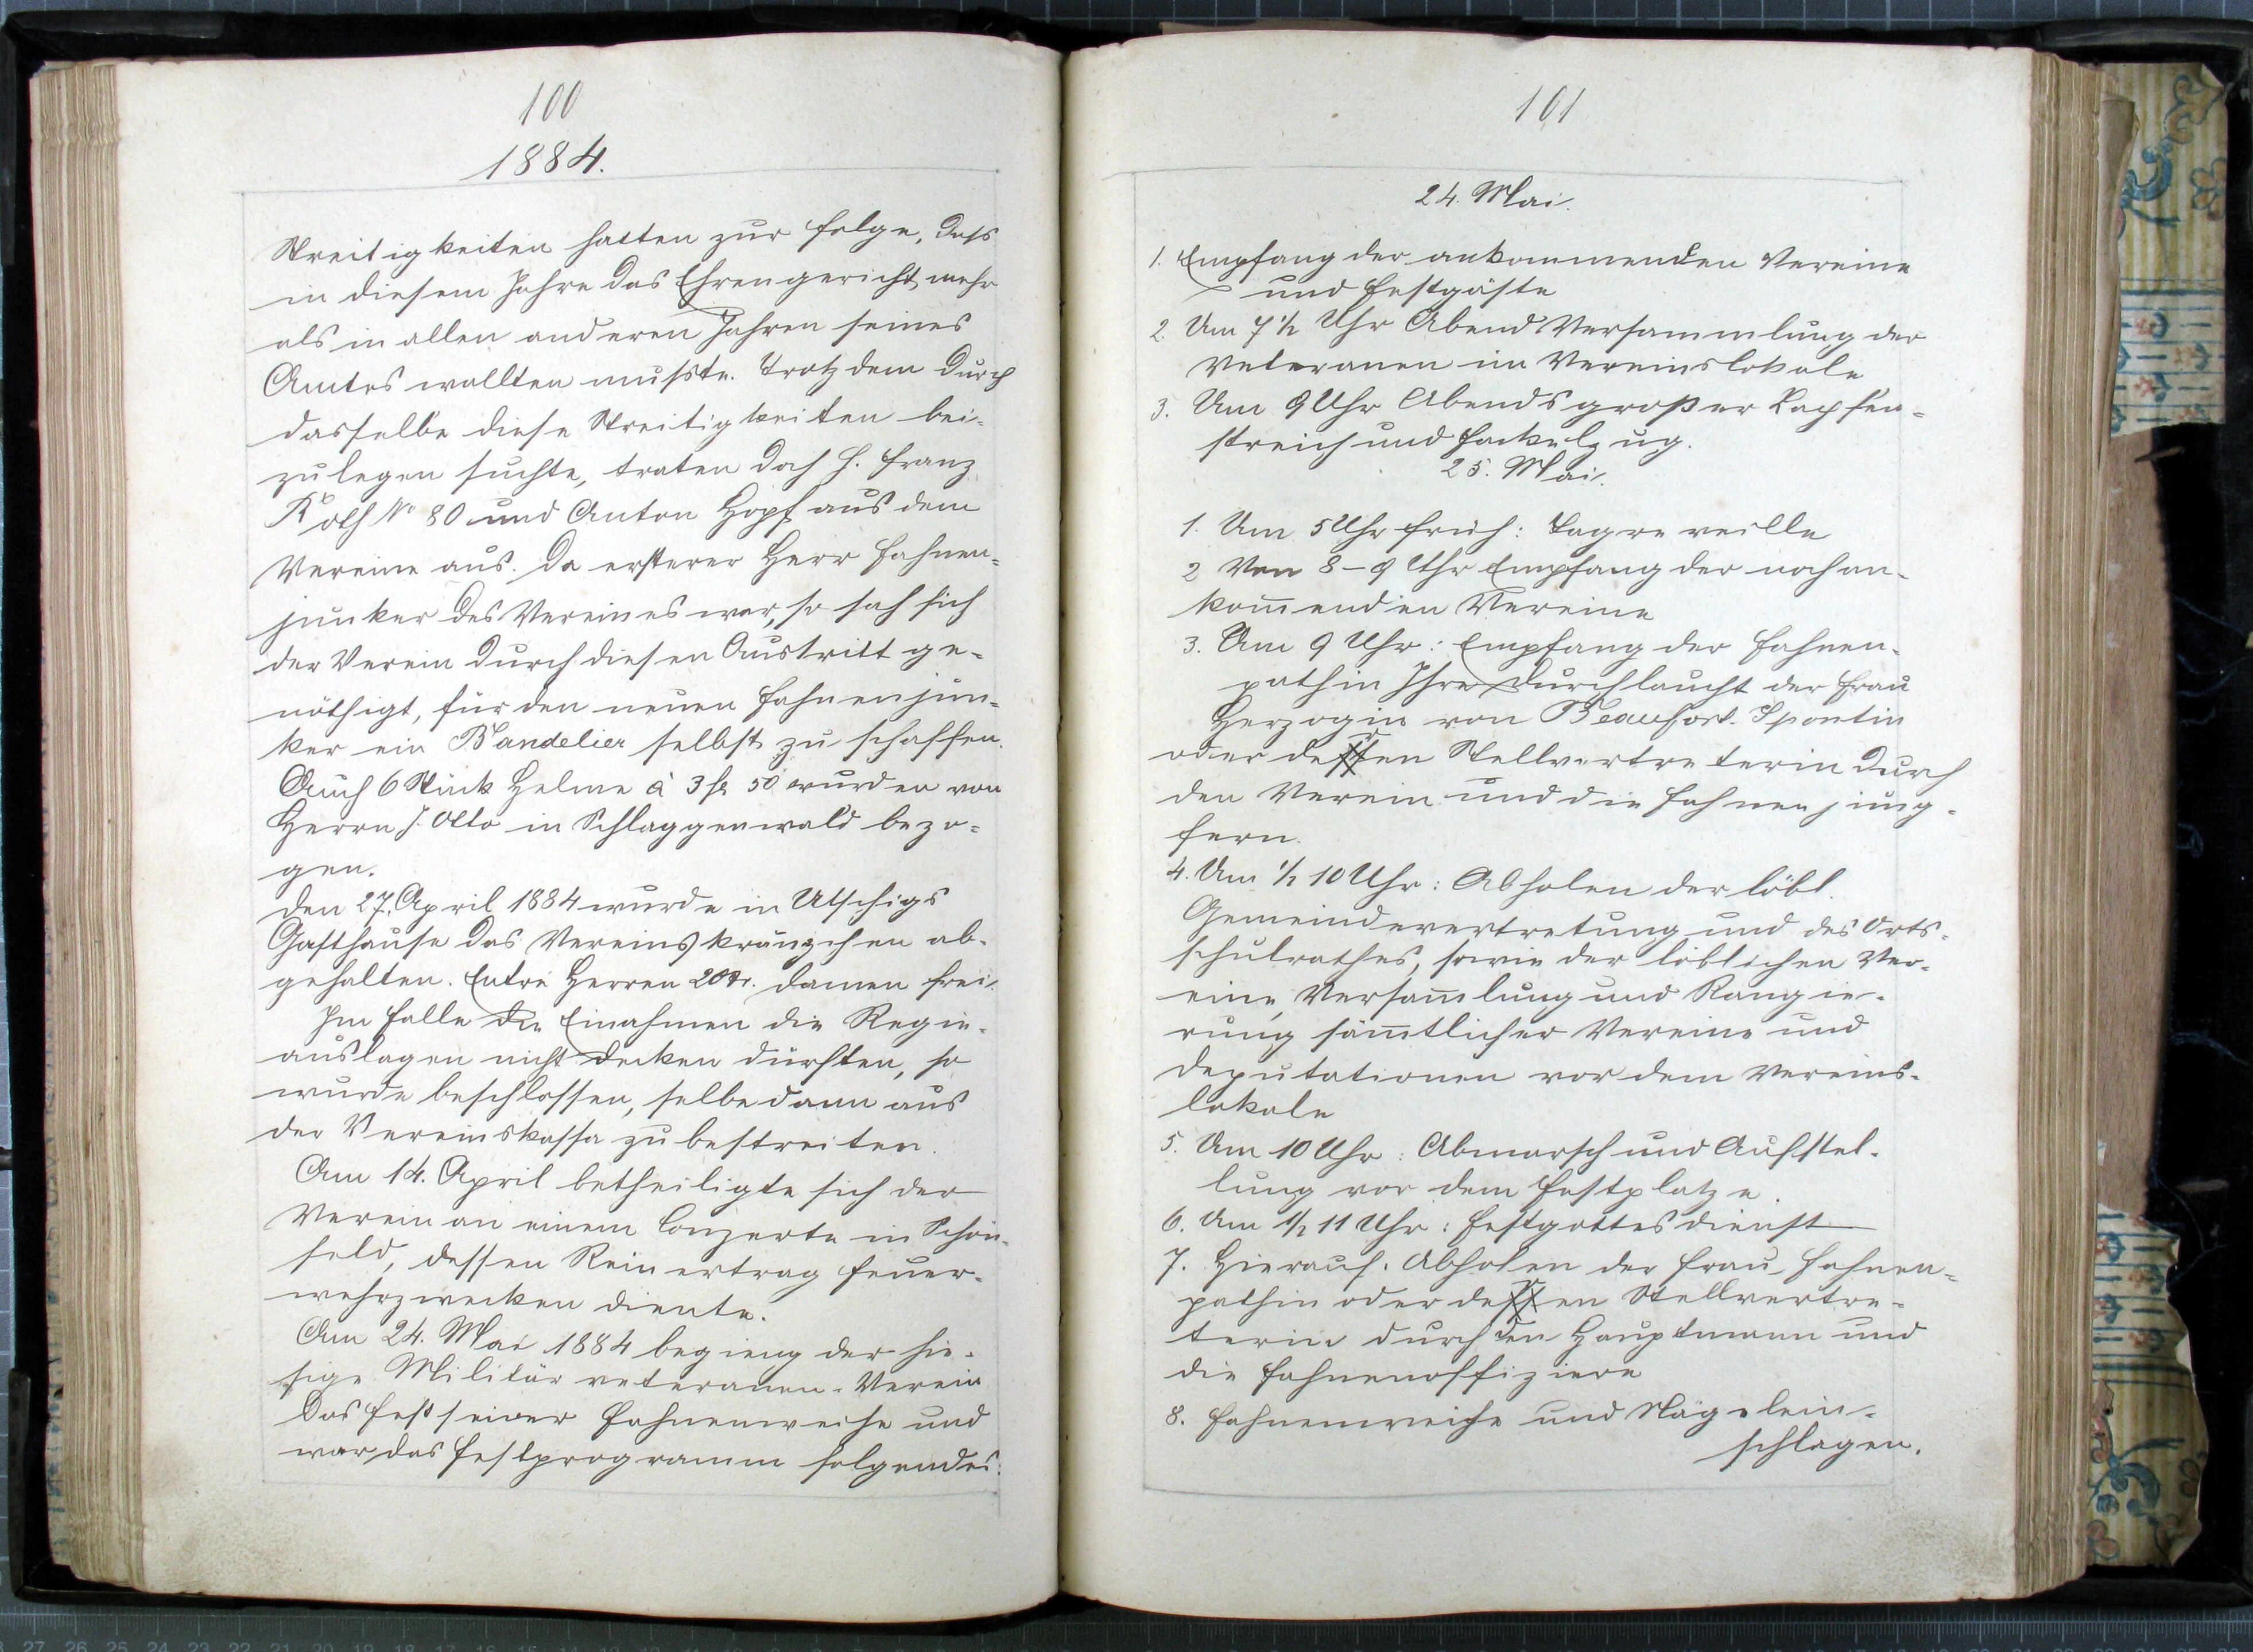 100
1884.
Streitigkeiten hatten zur Folge, dass
in diesem Jahre das Ehrengericht mehr
als in allen anderen Jahren seines
Amtes wallten mußte. Trotzdem durch
dasselbe diese Streitigkeiten bei-
zulegen suchte, traten doch H. Franz
Köth No 80 und Anton Hopf aus dem
Vereine aus. Da ersterer Herr Fahnen-
junker des Vereines war, so sah sich
der Verein durch diesen Austritt ge-
nöthigt, für den neuen Fahnenjun-
ker ein Bandelier selbst zu schaffen.
Auch 6 Stück Helme à 3 fl 50 wurden von
Herrn J. Otto in Schlaggenwald bezo-
gen.
Den 27. April 1884 wurde in Utschigs
Gasthause das Vereinskränzchen ab-
gehalten. Entré Herren 20 kr. Damen frei.
Im Falle die Einahmen die Regie-
auslagen nicht decken dürften, so
wurde beschlossen, selbe dann aus
der Vereinskassa zu bestreiten.
Am 14. April betheiligte sich der
Verein an einem Conzerte in Schön-
feld, dessen Reinertrag Feuer-
wehrzwecken diente.
Am 24. Mai 1884 begieng der hie-
sige Militärveteranen-Verein
das Fest seiner Fahnenweihe und
war das Festprogramm folgendes:
101
24. Mai.
1. Empfang der ankommenden Vereine
und Festgäste
2. Um 7 1/2 Uhr Abend Versammlung der
Veteranen im Vereinslokale
3. Um 9 Uhr Abends großer Zapfen-
streich und Fackelzug.
25. Mai.
1. Um 5 Uhr früh: Tagreveille
2 Von 8-9 Uhr Empfang der noch an-
kom̄enden Vereine
3. Um 9 Uhr: Empfang der Fahnen-
pathin Ihre Durchlaucht der Frau
Herzogin von Beaufort-Spontin
oder deren Stellvertreterin durch
den Verein und die Fahnenjung-
fern.
4. Um 1/2 10 Uhr: Abholen der löbl.
Gemeindevertretung und des Orts-
schulrathes, sowie der löblichen Ver-
eine, Versam̄lung und Rangie-
rung säm̄tlicher Vereine und
Deputationen vor dem Vereins-
lokale
5. Um 10 Uhr: Abmarsch und Aufstel-
lung vor dem Festplatze.
6. Um 1/2 11 Uhr: Festgottesdienst
7. Hierauf: Abholen der Frau Fahnen-
pathin oder deren Stellvertre-
terin durch den Hauptmann und
die Fahnenoffiziere
8. Fahnenweihe und Nägelein-
schlagen.